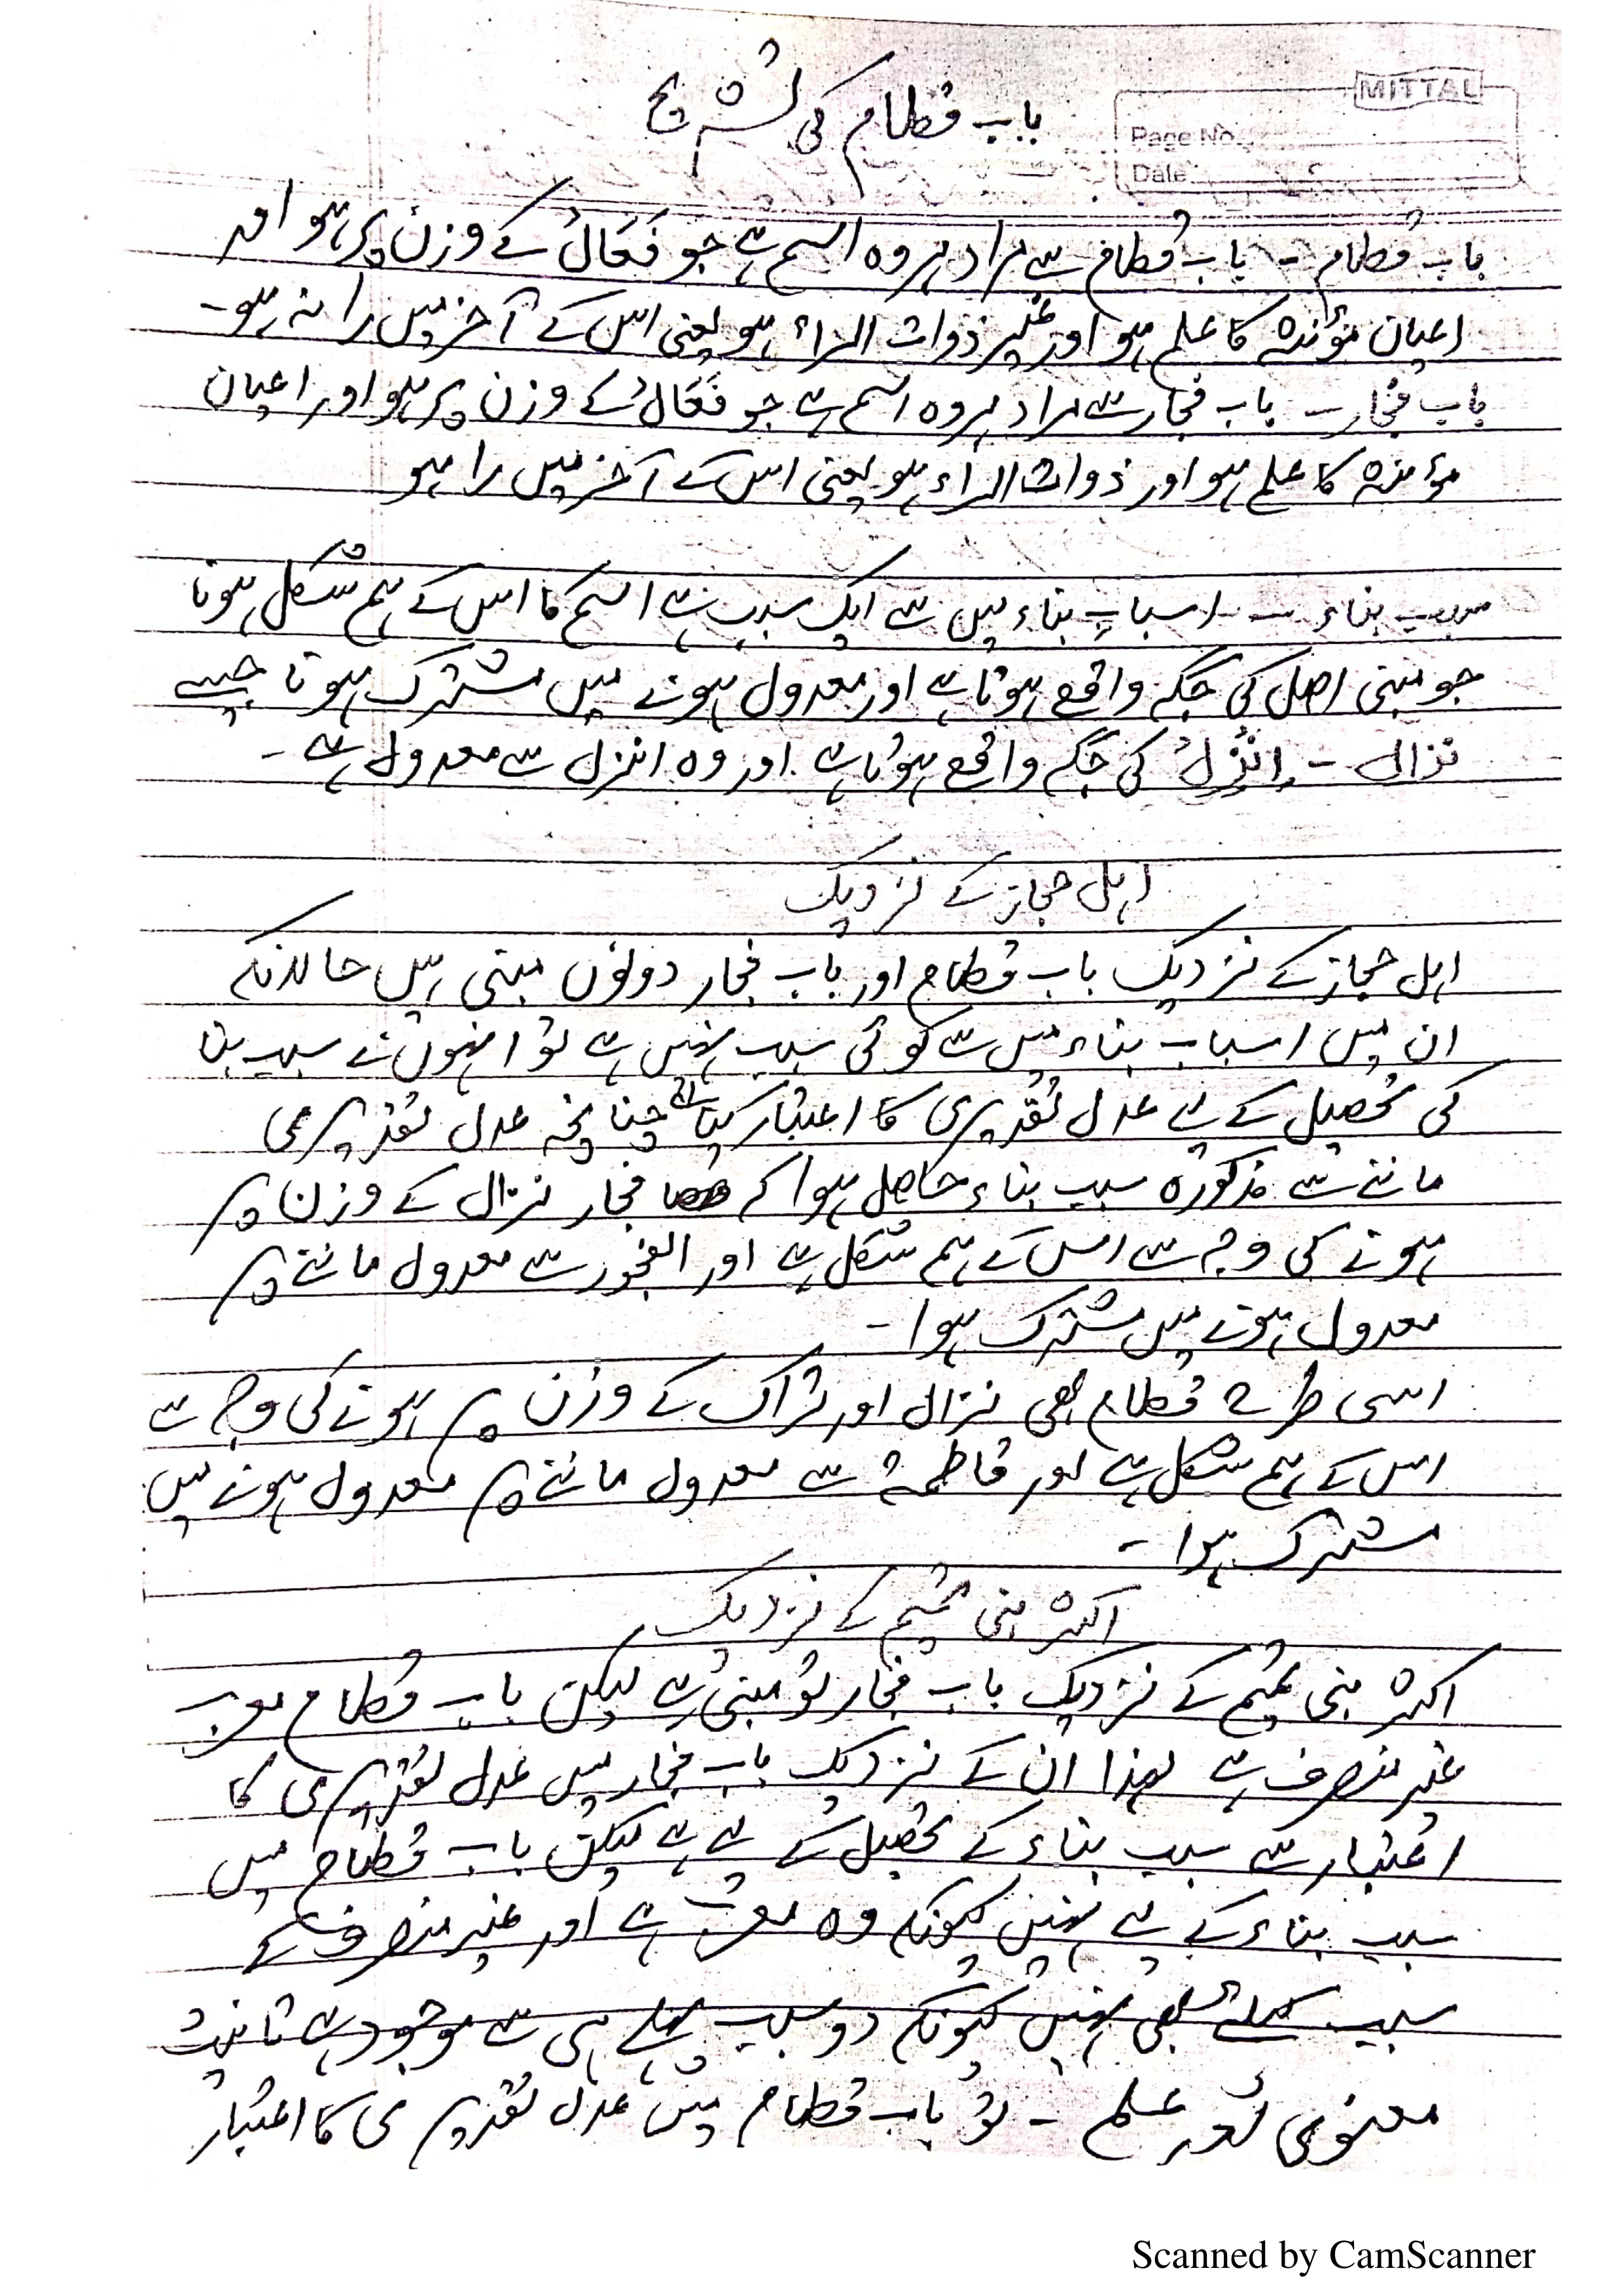 MITTAL
Page No.
Date
باب قطام کی تشریح
باب قطام - باب قطام سے مراد ہر وہ اسم ہے جو فَعَالُ کے وزن پر ہو اور
اعیان مؤنثہ کا علم ہو اور غیر ذوات الراء ہو یعنی اس کے آخر میں را نہ ہو۔
باب فجار - باب فجار سے مراد ہر وہ اسم ہے جو فَعَالُ کے وزن پر ہو اور اعیان
مؤنثہ کا علم ہو اور ذوات الراء ہو یعنی اس کے آخر میں را ہو
سبب بناء - اسبابِ بناء میں سے ایک سبب ہے اسم کا اس کے ہم شکل ہونا
جو مبنی اصل کی جگہ واقع ہوتا ہے اور معدول ہونے میں مشترک ہونا جیسے
نزال - اِنْزِلْ کی جگہ واقع ہوتا ہے اور وہ انزل سے معدول ہے -
اہل حجاز کے نزدیک
اہل حجاز کے نزدیک باب قطام اور باب فجار دونوں مبنی ہیں حالانکہ
ان میں اسباب بناء میں سے کوئی سبب نہیں ہے تو انہوں نے سبب بنا
کی تحصیل کے لیے عدل تقدیری کا اعتبار کیا ہے چنانچہ عدل تقدیری
ماننے سے مذکورہ سبب بناء حاصل ہوا کہ فجار نزال کے وزن پر
ہونے کی وجہ سے اس کے ہم شکل ہے اور الفجور سے معدول ماننے پر
معدول ہونے میں مشترک ہوا -
اسی طرح قطام بھی نزال اور تراک کے وزن پر ہونے کی وجہ سے
اس کے ہم شکل ہے اور قاطمۃ سے معدول ماننے پر معدول ہونے میں
مشترک ہوا -
اکثر بنی تمیم کے نزدیک
اکثر بنی تمیم کے نزدیک باب فجار تو مبنی ہے لیکن باب قطام معرب
غیر منصرف ہے لہذا ان کے نزدیک باب فجار میں عدل تقدیری کا
اعتبار سے سبب بناء کے تحصیل کے لیے ہے لیکن باب قطام میں
سبب بناء کے لیے نہیں کیونکہ وہ معرب ہے اور غیر منصرف کے
سبب کیلئے بھی نہیں کیونکہ دو سبب پہلے ہی سے موجود ہے تانیث
معنوی اور علم - تو باب قطام میں عدل تقدیری کا اعتبار
Scanned by CamScanner